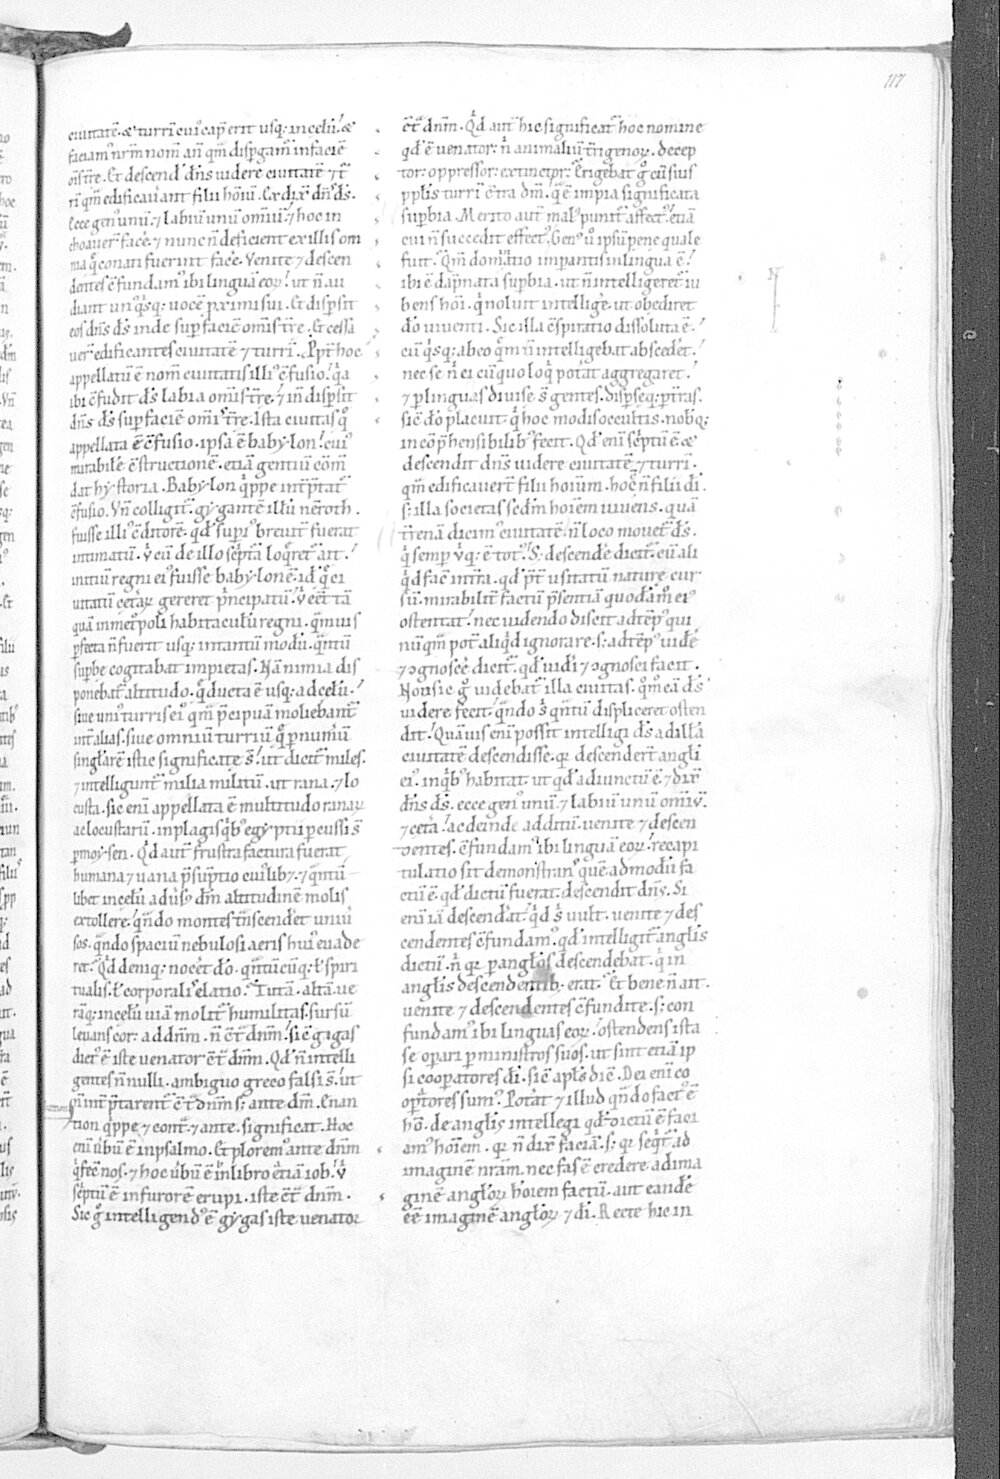 117
ciuitatē. & turrī cui' cap̄ erit usq; in cęlū.' &
faciam' nr̄m nom̄ an̄ qm̄ dispgam' in faciē
oīs tr̄e. Et descend' dn̄s uidere ciuitatē ⁊ t̄
rī qm̄ edificauerant filii hoīu. Et dix̄ dn̄s ds̄.
Ecce gen' unū. ⁊ labiū unū omīu. ⁊ hoc in
choauer̄ facē. ⁊ nunc n̄ deficient ex illis om
nia q̊ conati fuerint facē. Venite ⁊ descen
dentes c̄fundam' ibi linguā eoꝝ.' ut n̄ au
diant unq̊sq; uocē pximi sui. Et dispsit
eos dn̄s ds̄ inde sup faciē omīs tr̄e. Et cessa
uer̄ edificantes ciuitatē ⁊ turrī. Ppt̄ hoc
appellatū ē nom̄ ciuitatis illi' c̄fusio.' q̄a
ibi c̄fudit ds̄ labia omīs tr̄e.' ⁊ in dispsit
dn̄s ds̄ sup faciē omīs tr̄e. Ista ciuitas q̊
appellata ē c̄fusio. ipsa ē babylon.' cui'
mirabilē c̄structionē. etiā gentiū cōm̄
dat hystoria. Babylon q̊ppe intp̄tat̄
c̄fusio. Vn̄ colligit̄. gygantē illū nēroth.
fuisse illi' c̄ditorē. qd̄ supi' breuit̄ fuerat
intimatū. V̊ cū de illo sc̄ptā loq̄ret̄ ait.'
initiū regni ei' fuisse babylonē. id' q̄ ci
uitatū cet̄aꝝ gereret p̄ncipatū.' V̊ eēt tā
quā in met̄poli habitaculū regni. q̄muis
pfecta n̄ fuerit usq; in tantū modū. q̄ntū
supbe cogitabat impietas. Nā nimia dis
ponebat̄ altitudo. q̊ ducta ē usq; ad cęlū.'
siue uni' turris ei' qm̄ p̄cipuā moliebant̄
int̄ alias. siue omniū turriū q̊ p numerū
singlarē istic significatę s̄.' ut dicit̄ miles.
⁊ intelligunt̄ milia militū. ut rana. ⁊ lo
custa. sic enī appellata ē multitudo ranaꝝ
ac locustarū. in plagis q̊b' egyptii pcussi s̄
p moysen. Qd̄ aut̄ frustra factura fuerat
humana ⁊ uana p̄sūptio cui'libꝫ. ⁊ q̄ntū
libet in cęlū aduˢ' dm̄ altitudinē molis
extollere.' q̄ndo montes t̄nscendet uniū
sos. q̄ndo spaciū nebulosi aeris hui' euade
ret. Qd̄ deniq; nocēt dō. q̄ntū cūq; ł spiri
tualis. ł corporali' elatio. Tutā. altā. ue
rāq; in cęlū uiā molit̄ humilitas. sursū
leuans cor. ad dnm̄. n̄ c̄t̄ dnm̄.' sic̄ gigas
dict' ē iste uenator c̄t̄ dnm̄. Qd̄ n̄ intelli
gentes n̄nulli. ambiguo greco falsi s̄.' ut
n̄ int̄ptarent̄ c̄t̄ dnm̄ s; ante dm̄. Enan
tion q̊ppe ⁊ cont̄. ⁊ ante. significat. Hoc
enī ůbū ē in psalmo. Et plorem' ante dnm̄
q̊ fec̄ nos. ⁊ hoc ůbū ē in libro etiā iob.' V̊
sc̄ptū ē in furorē erupi. iste c̄t̄ dnm̄.
Sic g̊ intelligend' ē gygas iste uenator
c̄t̄ dnm̄. Qd̄ aut̄ hic significat̄ hoc nomine
qd̄ ē uenator.' n̄ animaliū t̄rigenoꝝ. decep
tor. oppressor. extinctor.' Erigebat g̊ cū suis
pplis turrī c̄tra dm̄. q̄ ē impia significata
supbia. Merito aut̄ mal' punit̄ affect'. etiā
cui n̄ succedit effect'. Gen' ů ipsū penę quale
fuit. Qm̄ dom̄atio impantis in lingua ē.'
ibi ē dāpnata supbia. ut n̄ intelligeret̄ iu
bens hōi. q̊ noluit intelligē. ut obediret
dō uiuenti. Sic illa c̄spiratio dissoluta ē.'
cū q̊sq; ab eo q̊m n̄ intelligebat abscedēt.'
nec se n̄ ei cū quo loq̊ potāt aggregaret.'
⁊ p linguas diuisę s̄ gentes. dispseq; p t̄ras.
sic̄ dō placuit. q̊ hoc modis occultis. nobq;
incōp̄hensibilib' fecit. Qd̄ enī sc̄ptū ē. &
descendit dn̄s uidere ciuitatē. ⁊ turrī.
qm̄ edificauert̄ filii hoīum. hoc ē n̄ filii dī.
s; illa societas sedm̄ hoīem uiuens. quā
t̄renā dicim' ciuitatē. n̄ loco mouet̄ ds̄.
q̊ semp v̊q; ē tot'.' S; descendē dicit̄. cū ali
q̊d fac̄ in t̄ra. qd̄ p̄t̄ usitatū naturę cur
sū. mirabilit̄ factū p̄sentiā quodāmͦ ei'
ostentat.' nec uidendo discit ad tēp' qui
nūqm̄ pot̄ aliq̊d ignorare. s; ad tēp' uidē
⁊ ↄgnoscē dicit̄. qd̄ uidī ⁊ ↄgnosci facit.
Non sic g̊ uidebat̄ illa ciuitas. q̊mͦ eā ds̄
uidere fecit.' q̄ndo s̄ q̄ntū displiceret osten
dit. Quāuis enī possit intelligi ds̄ ad illā
ciuitatē descendisse. qꝛ descendert̄ angli
ei'. in q̊b' habitat. ut qd̄ adiunctū ē. ⁊ dix̄
dn̄s ds̄. ecce gen' unū. ⁊ labiū unū omīū.
⁊ cet̄a.' ac deinde additū. uenite ⁊ descen
dentes. c̄fundam' ibi linguā eoꝝ.' recapi
tulatio sit demonstran' quē admodū fa
ctū ē. qd̄ dictū fuerat. descendit dn̄s. Si
enī iā descendāt.' q̊d s̄ uult. uenite ⁊ des
cendentes c̄fundam'. qd̄ intelligit̄ anglis
dictū. n̄ qꝛ p anglos descendebat. q̊ in
anglis descendentib; erat. Et bene n̄ ait.
uenite ⁊ descendentes c̄fundite. s; con
fundam' ibi linguas eoꝝ.' ostendens ista
se opari p ministros suos. ut sint etiā ip
si coopatores dī. sic̄ apls̄ dic̄. Dei enī co
opatores sum'. Potāt ⁊ illud q̄ndo fact' ē
hō. de anglis intellegi qd̄ dictū ē faci
am' hoīem. qꝛ n̄ dix̄ faciā. s; qꝛ seq̊t̄ ad
imaginē nrām. nec fas ē credere ad ima
ginē angloꝝ hoīem factū. aut eandē
eē imaginē angloꝝ ⁊ dī. Recte hic in